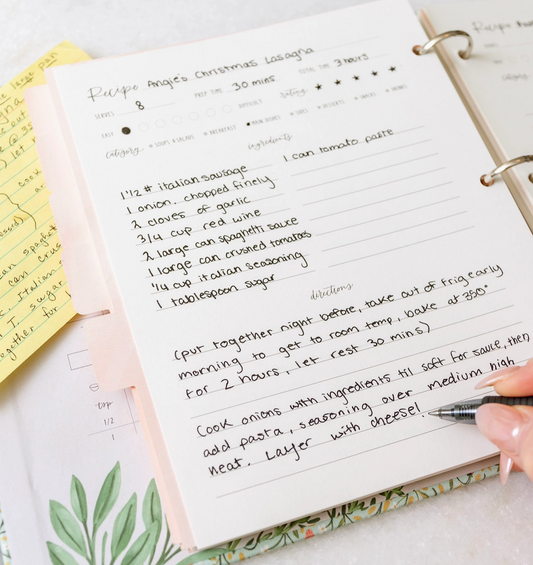 Recipe Angie's Christmas Lasagna
SERVES 8 PREP TIME 30 mins TOTAL TIME 3 hours
EASY DIFFICULT Rating
category SOUPS & SALADS BREAKFAST MAIN DISHES SIDES DESSERTS SNACKS DRINKS
ingredients
1 1/2 # italian sausage
1 onion, chopped finely
2 cloves of garlic
3/4 cup red wine
2 large can spaghetti sauce
1 large can crushed tomatoes
1/4 cup italian seasoning
1 tablespoon sugar
1 can tomato paste
directions
(put together night before, take out of frig early
morning to get to room temp, bake at 350°
for 2 hours, let rest 30 mins)
Cook onions with ingredients til soft for sauce, then
add pasta, seasoning over medium high
heat. Layer with cheese!
Recipe
large pan
can spaghet
sugar
together for
cup
1/2
1